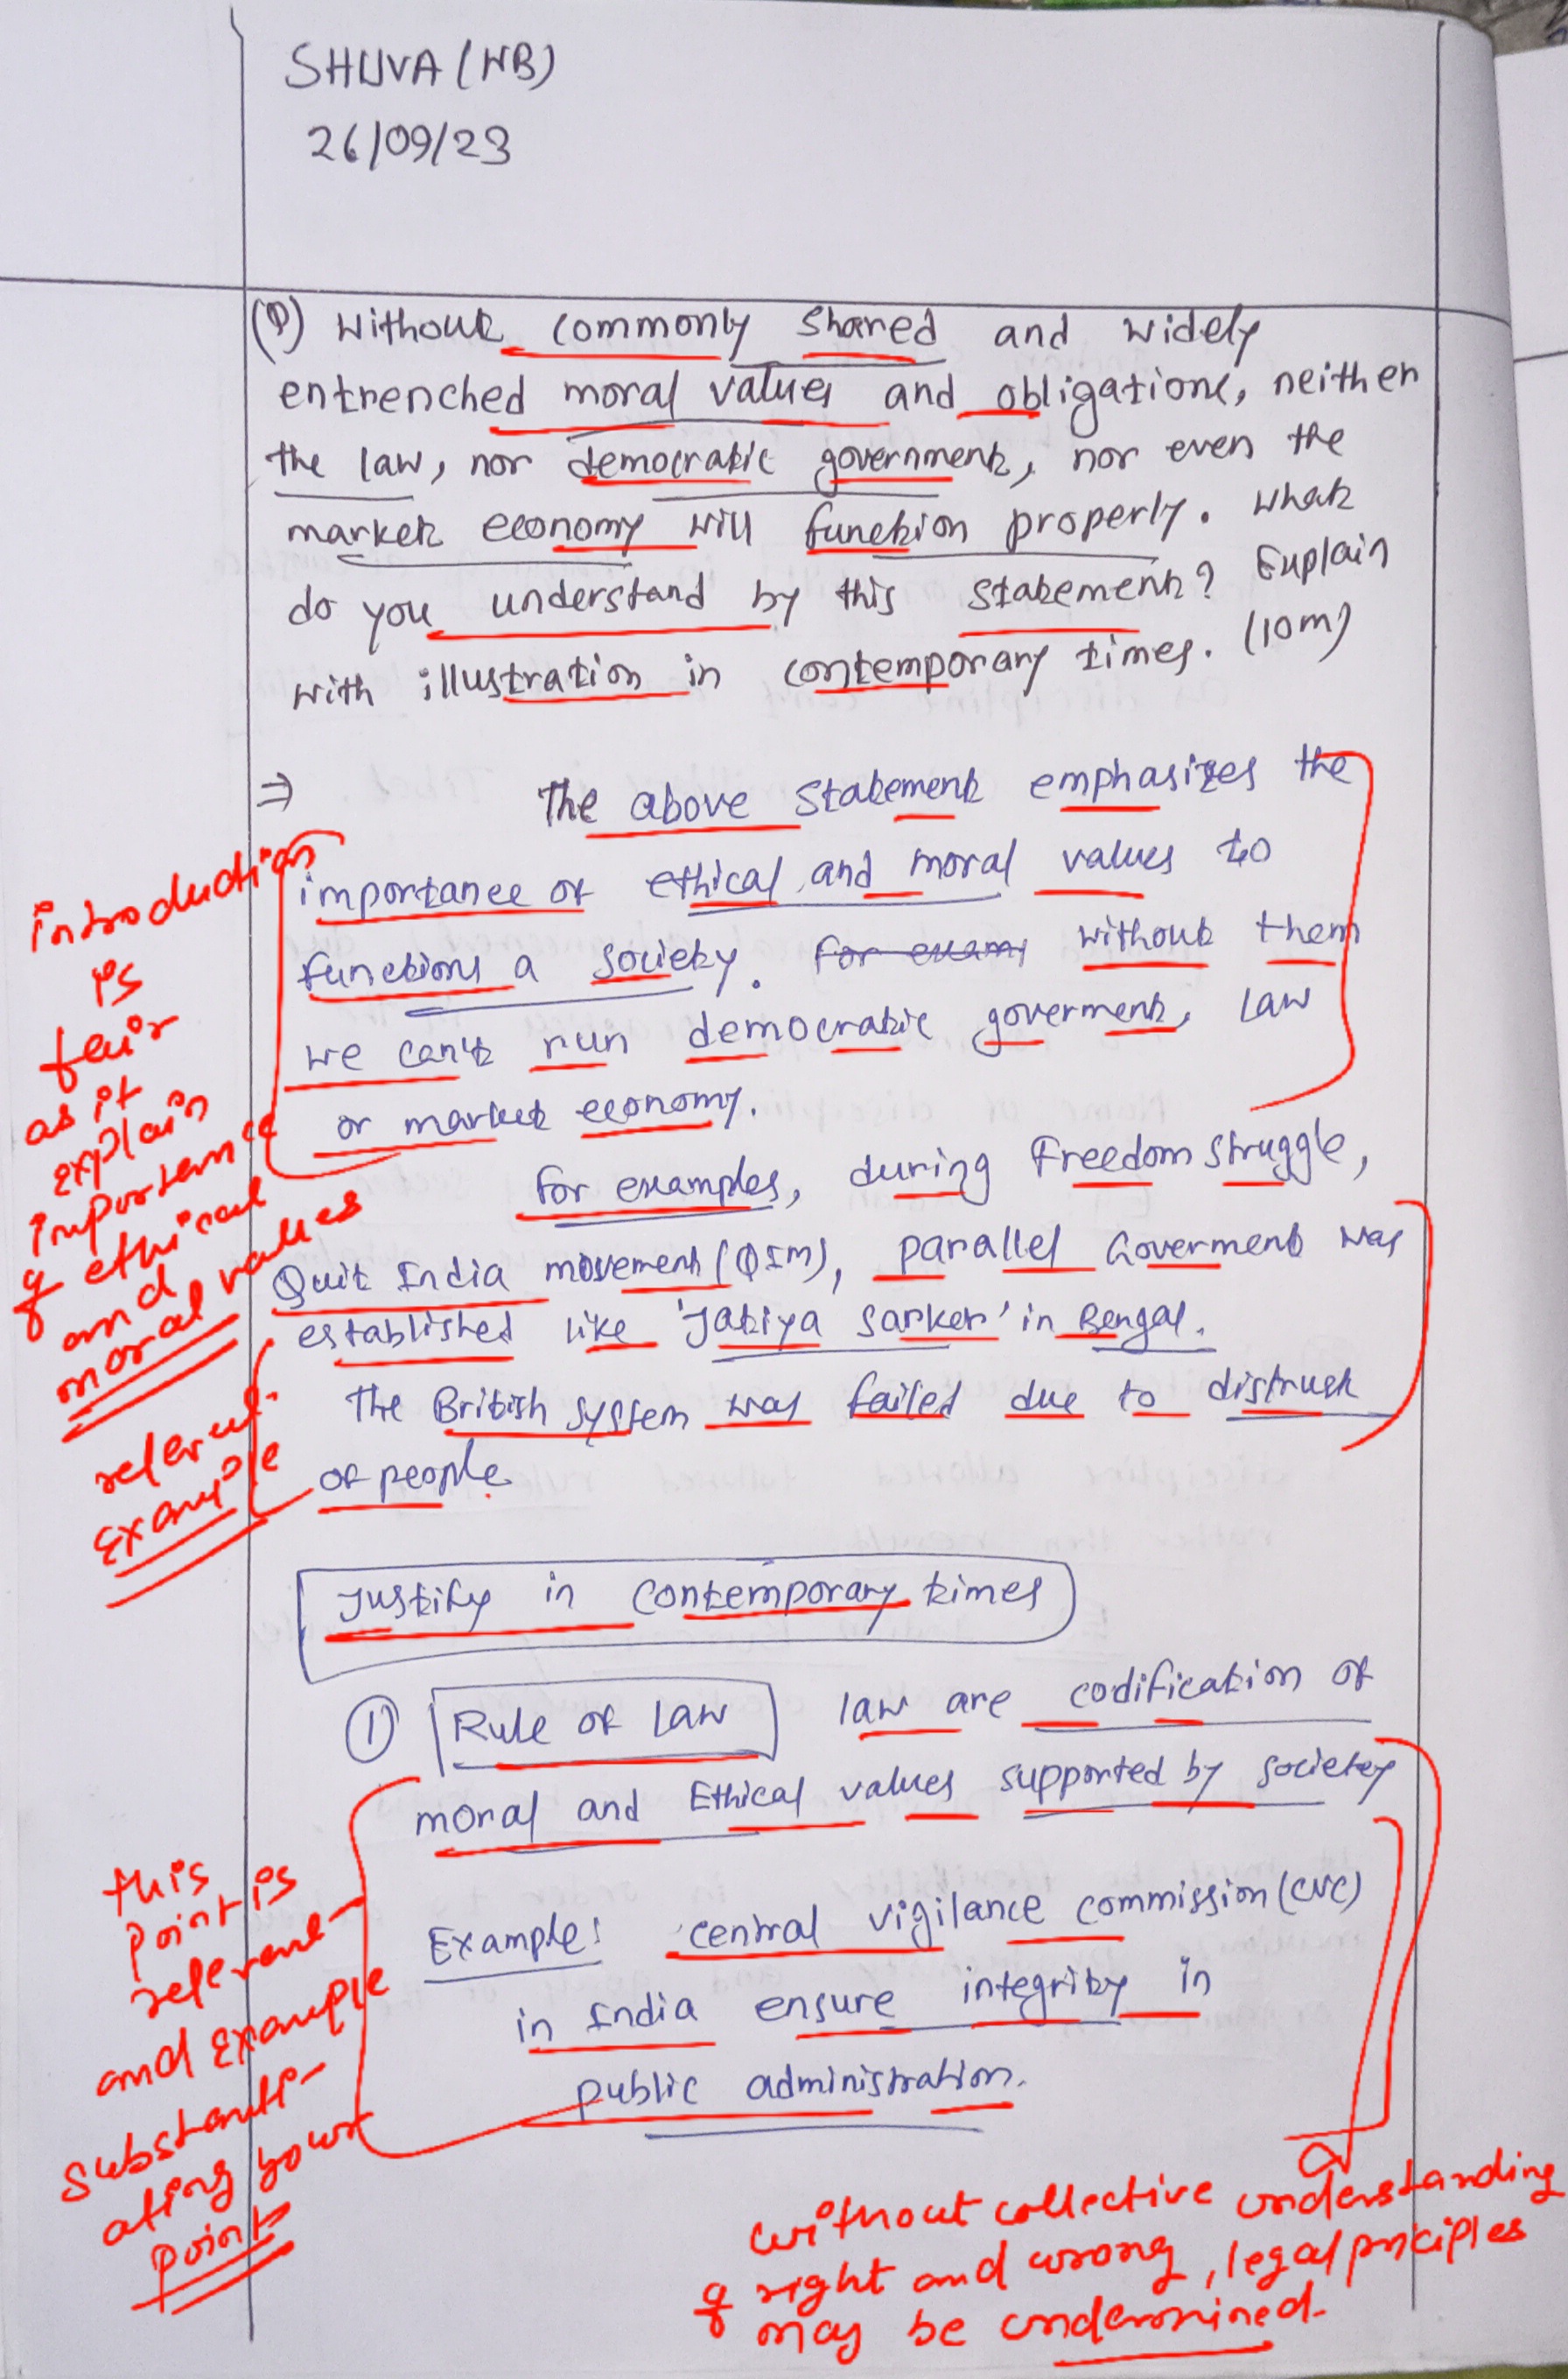 SHUVA (WB)
26/09/23
(Q) Without commonly shared and widely
entrenched moral values and obligations, neither
the law, nor democratic government, nor even the
market economy will function properly. What
do you understand by this statement? Explain
with illustration in contemporary times. (10m)
⇒ The above statement emphasizes the
importance of ethical and moral values to
functions a society. For exam, without them
we can't run democratic goverment, law
or market economy.
For examples, during Freedom struggle,
Quit India movement (QIM), parallel Goverment was
established like 'Jatiya sarker' in Bengal.
The British system was failed due to distrust
of people.
introduction
is
fair
as it
explain
importance
of ethical
and
moral values
relevant
Example
Justify in contemporary times
① Rule of Law law are codification of
moral and Ethical values supported by society
Example: central vigilance commission (CVC)
in India ensure integrity in
public administration.
this
point is
relevant
and Example
substanti-
ating your
point
without collective understanding
of right and wrong, legal priciples
may be undermined.